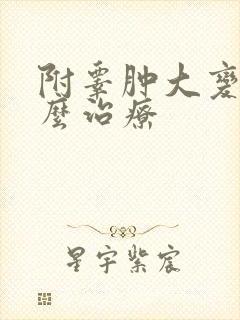 附睾肿大
麼治療
星宇紫宸